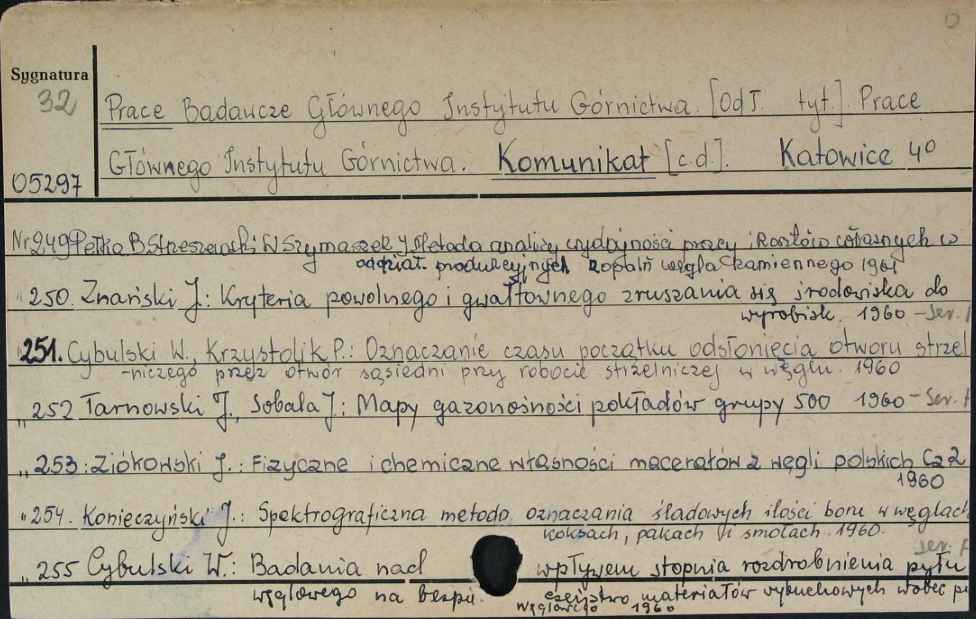 Sygnatura
32
Prace Badawcze Głównego Instytutu Górnictwa. [Od T. tyt.]. Prace
Głównego Instytutu Górnictwa. Komunikat [c.d.]. Katowice 4°
05297
Nr 249 Pełka B Streszewski W Szymaszek J Metoda analizy wydajności pracy i kosztów własnych w
oddział. produkcyjnych kopalń węgla kamiennego 1961
" 250. Znański J.: Kryteria powolnego i gwałtownego zruszania się środowiska do
wyrobisk. 1960 - Ser. A
" 251. Cybulski W., Krzystolik P.: Oznaczanie czasu początku odsłonięcia otworu strzel
-niczego przez otwór sąsiedni przy robocie strzelniczej w węglu. 1960
" 252 Tarnowski J., Sobala J.: Mapy gazonośności pokładów grupy 500 1960 - Ser. A
" 253: Ziółkowski J.: Fizyczne i chemiczne własności macerałów z węgli polskich Cz 2
1960
" 254. Konieczyński J.: Spektrograficzna metoda oznaczania śladowych ilości boru w węglach
koksach, pakach i smołach. 1960.
Ser. A
" 255 Cybulski W.: Badania nad wpływem stopnia rozdrobnienia pyłu
węglowego na bezpie- czeństwo materiałów wybuchowych wobec
węglowego 1960